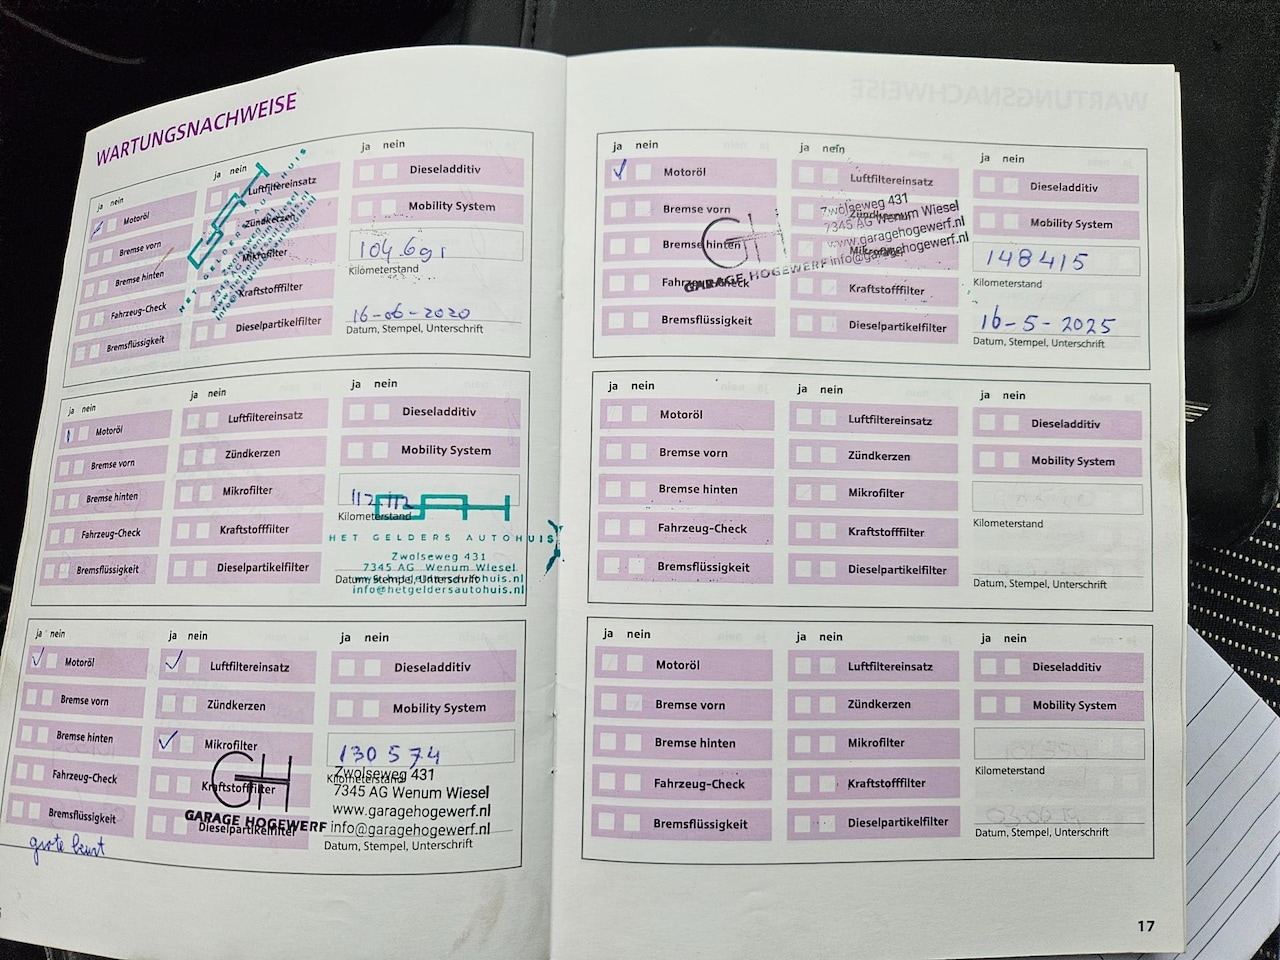 WARTUNGSNACHWEISE
ja nein
Motoröl
Bremse vorn
Bremse hinten
Fahrzeug-Check
Bremsflüssigkeit
ja nein
Luftfiltereinsatz
Zündkerzen
Mikrofilter
Kraftstofffilter
Dieselpartikelfilter
HET GELDERS AUTOHUIS
Zwolseweg 431
7345 AG Wenum Wiesel
ja nein
Dieseladditiv
Mobility System
104.691
Kilometerstand
16-06-2020
Datum, Stempel, Unterschrift
ja nein
Motoröl
Bremse vorn
Bremse hinten
Fahrzeug-Check
Bremsflüssigkeit
Luftfiltereinsatz
Zündkerzen
Mikrofilter
Kraftstofffilter
Dieselpartikelfilter
ja nein
Dieseladditiv
Mobility System
Kilometerstand
HET GELDERS AUTOHUIS
Zwolseweg 431
7345 AG Wenum Wiesel
Datum, Stempel, Unterschrift
info@hetgeldersautohuis.nl
ja nein
Motoröl
Bremse vorn
Bremse hinten
Fahrzeug-Check
Bremsflüssigkeit
grote beurt
ja nein
Luftfiltereinsatz
Zündkerzen
Mikrofilter
Kraftstofffilter
Dieselpartikelfilter
GH
GARAGE HOGEWERF
ja nein
Dieseladditiv
Mobility System
130574
Kilometerstand
Zwolseweg 431
7345 AG Wenum Wiesel
www.garagehogewerf.nl
info@garagehogewerf.nl
Datum, Stempel, Unterschrift
ja nein
Motoröl
Bremse vorn
Bremse hinten
Fahrzeug-Check
Bremsflüssigkeit
GH
GARAGE HOGEWERF
ja nein
Luftfiltereinsatz
Zündkerzen
Mikrofilter
Kraftstofffilter
Dieselpartikelfilter
Zwolseweg 431
7345 AG Wenum Wiesel
www.garagehogewerf.nl
info@garagehogewerf.nl
ja nein
Dieseladditiv
Mobility System
148415
Kilometerstand
16-5-2025
Datum, Stempel, Unterschrift
ja nein
Motoröl
Bremse vorn
Bremse hinten
Fahrzeug-Check
Bremsflüssigkeit
ja nein
Luftfiltereinsatz
Zündkerzen
Mikrofilter
Kraftstofffilter
Dieselpartikelfilter
ja nein
Dieseladditiv
Mobility System
Kilometerstand
Datum, Stempel, Unterschrift
ja nein
Motoröl
Bremse vorn
Bremse hinten
Fahrzeug-Check
Bremsflüssigkeit
ja nein
Luftfiltereinsatz
Zündkerzen
Mikrofilter
Kraftstofffilter
Dieselpartikelfilter
ja nein
Dieseladditiv
Mobility System
Kilometerstand
Datum, Stempel, Unterschrift
17